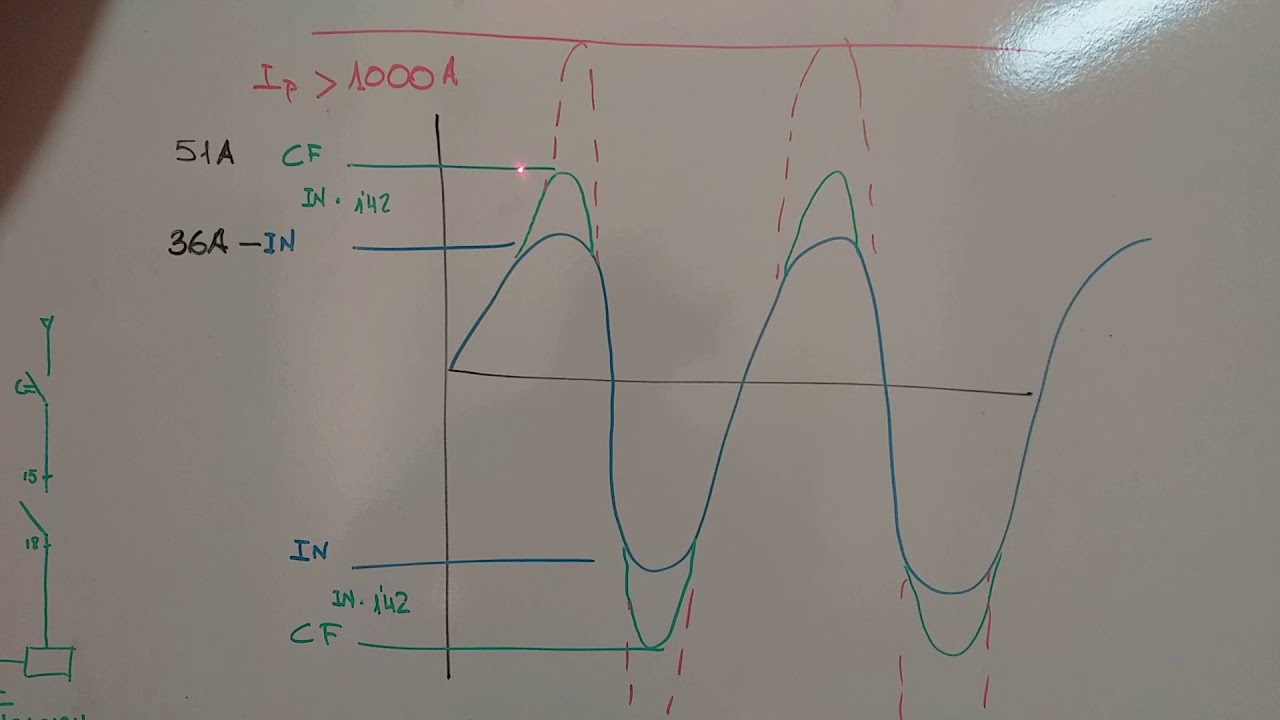 Ip > 1000A
51A CF
IN · 1'42
36A - IN
15
18
IN
IN · 1'42
CF